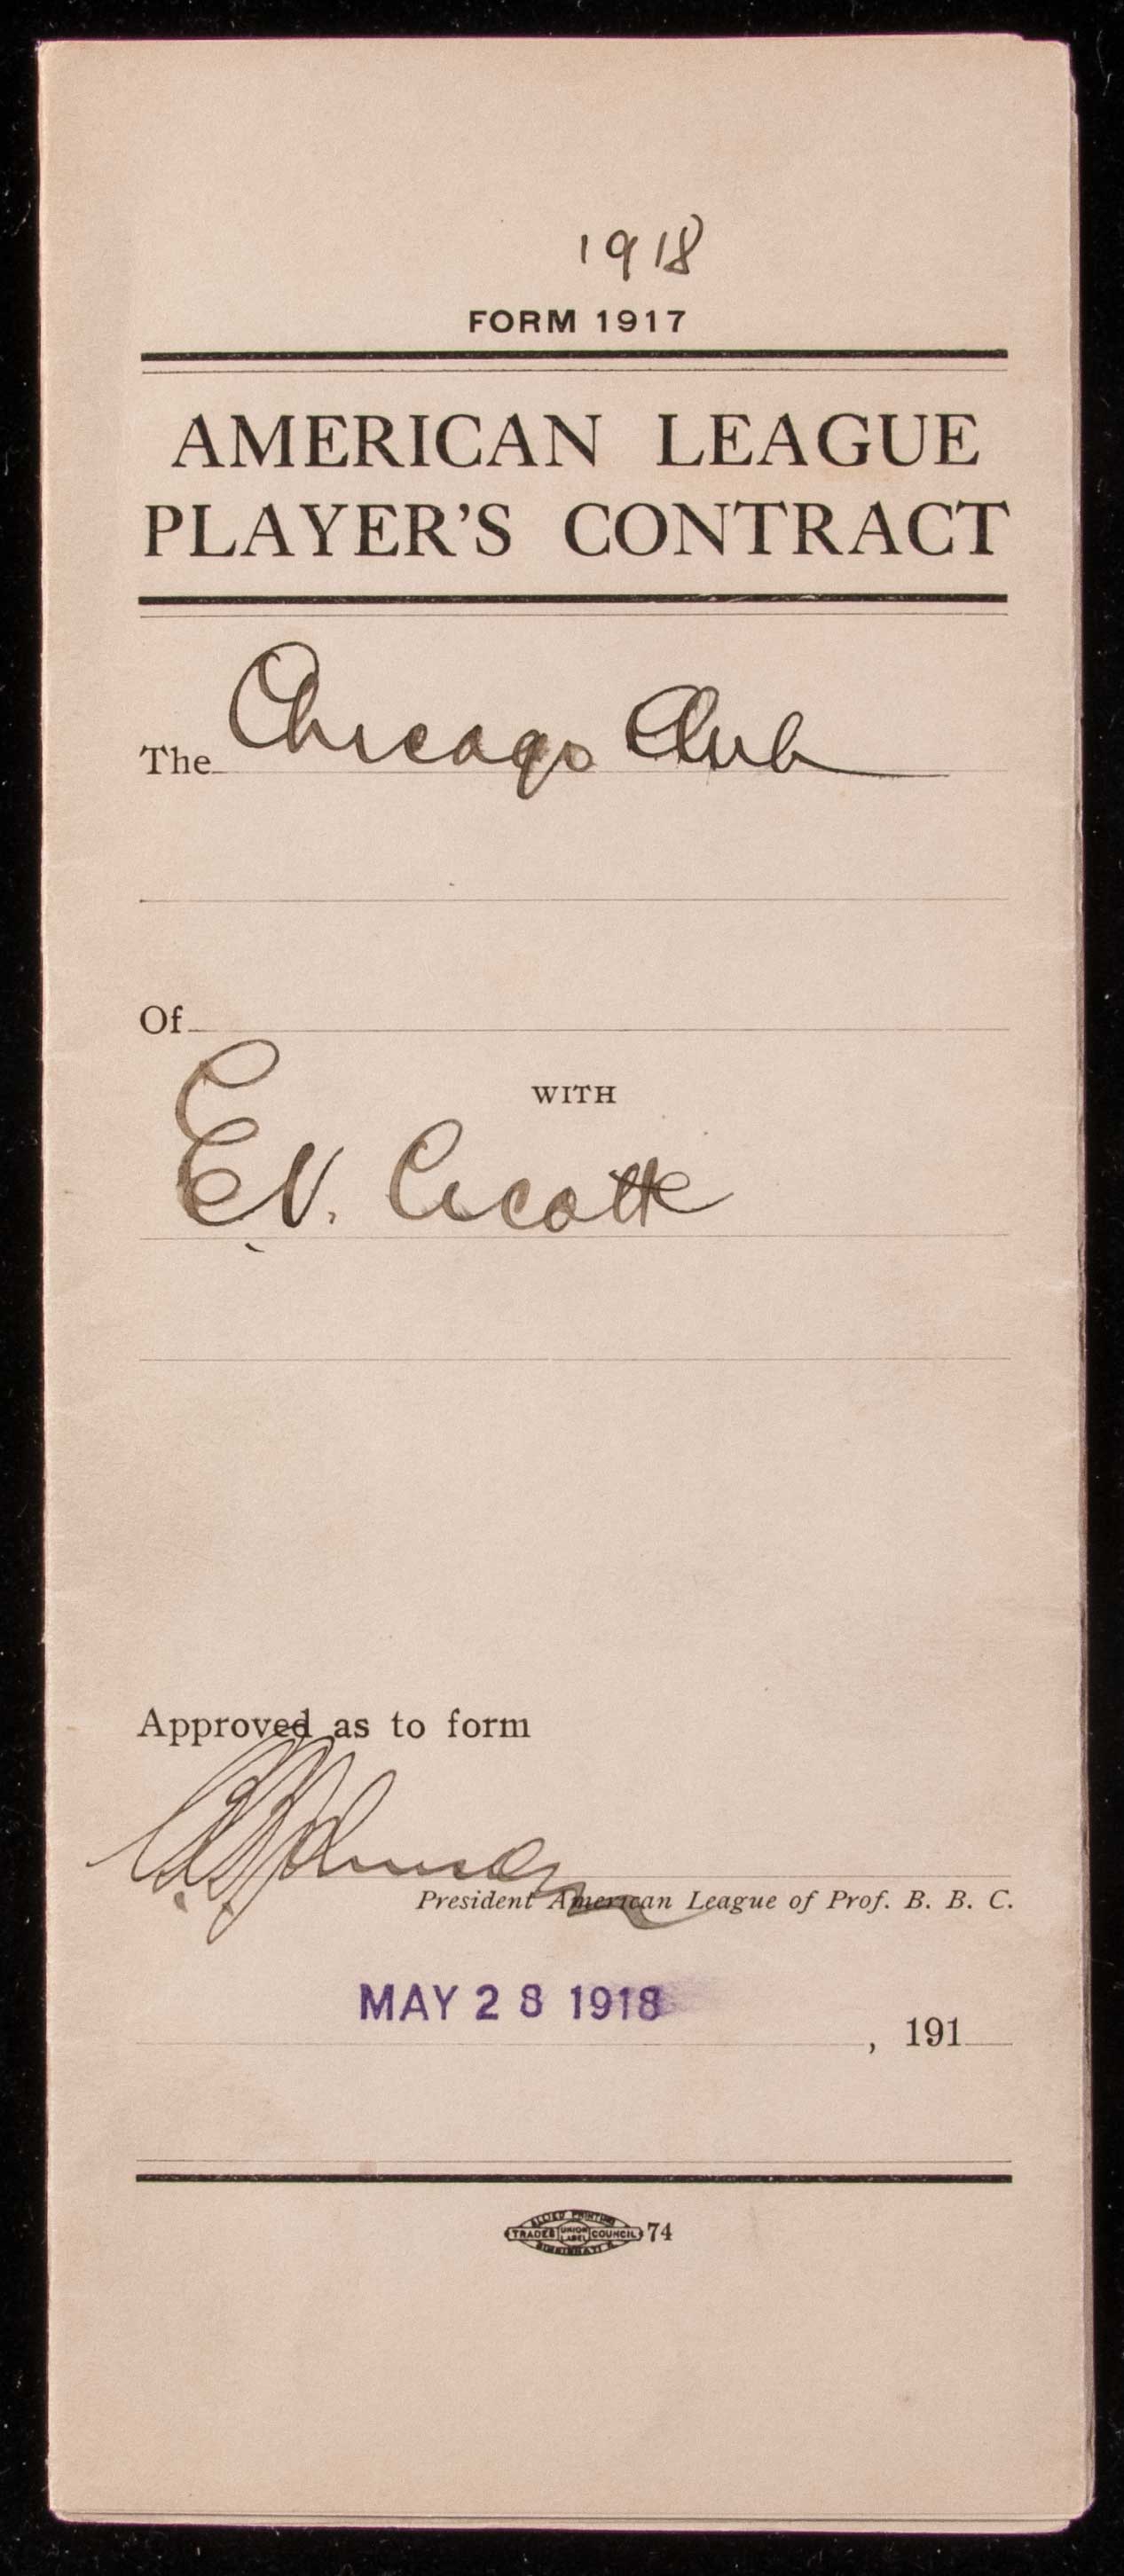 1918
FORM 1917
AMERICAN LEAGUE
PLAYER'S CONTRACT
The Chicago Club
Of
WITH
E.V. Cicotte
Approved as to form
B B Johnson
President American League of Prof. B. B. C.
MAY 28 1918
, 191
ALLIED PRINTING
TRADES UNION LABEL COUNCIL 74
CINCINNATI